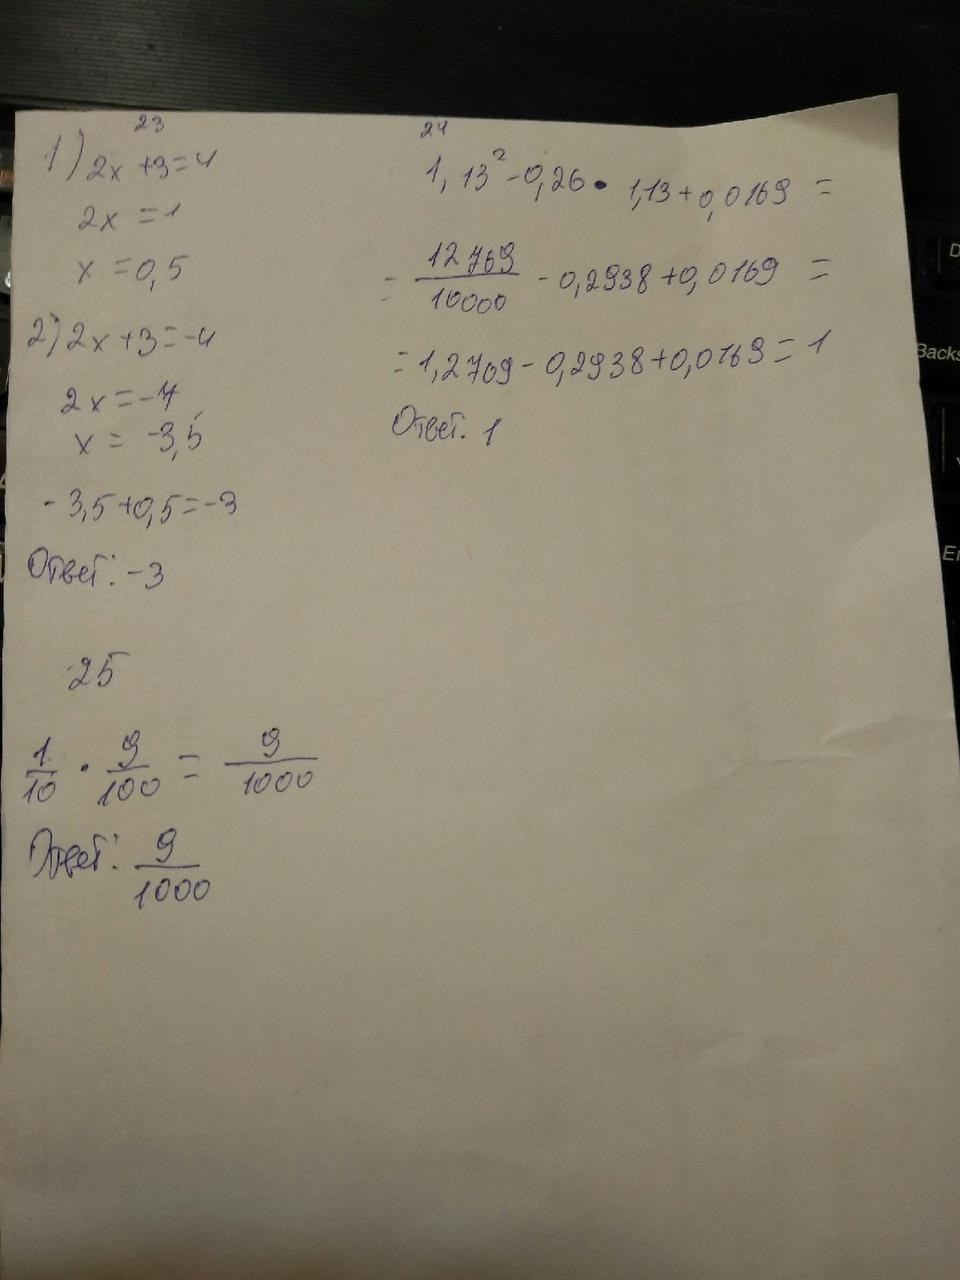 23
1) 2x + 3 = 4
2x = 1
x = 0,5
2) 2x + 3 = -4
2x = -7
x = -3,5
-3,5 + 0,5 = -3
Ответ: -3
24
1,13² - 0,26 • 1,13 + 0,0169 =
= 12769/10000 - 0,2938 + 0,0169 =
= 1,2769 - 0,2938 + 0,0169 = 1
Ответ. 1
25
1/10 • 9/100 = 9/1000
Ответ: 9/1000
D
Backs
En